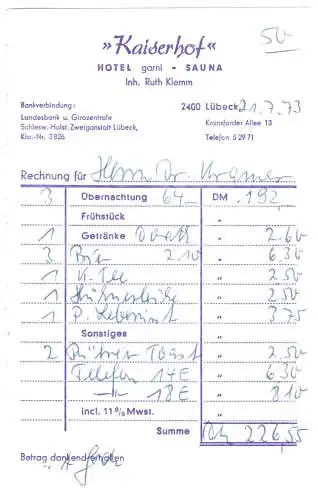 50
»Kaiserhof«
HOTEL garni - SAUNA
Inh. Ruth Klemm
Bankverbindung:
Landesbank u. Girozentrale
Schlesw.-Holst. Zweiganstalt Lübeck,
Kto.-Nr. 3826
2400 Lübeck 21.7.73
Kronsforder Allee 13
Telefon 5 29 71
Rechnung für Herrn Dr. Kramer
3 Übernachtung 64,— DM 192
Frühstück "
1 Getränke " 2.60
3 Bier 2.10 " 6.30
1 K. Tee " 2.50
1 " 2.50
1 P. " 3.75
Sonstiges "
2 Toast " 2.50
Telefon 14 E " 6.30
—"— 18 E " 8.10
incl. 11 % Mwst. "
Summe DM 226,55
Betrag dankend erhalten